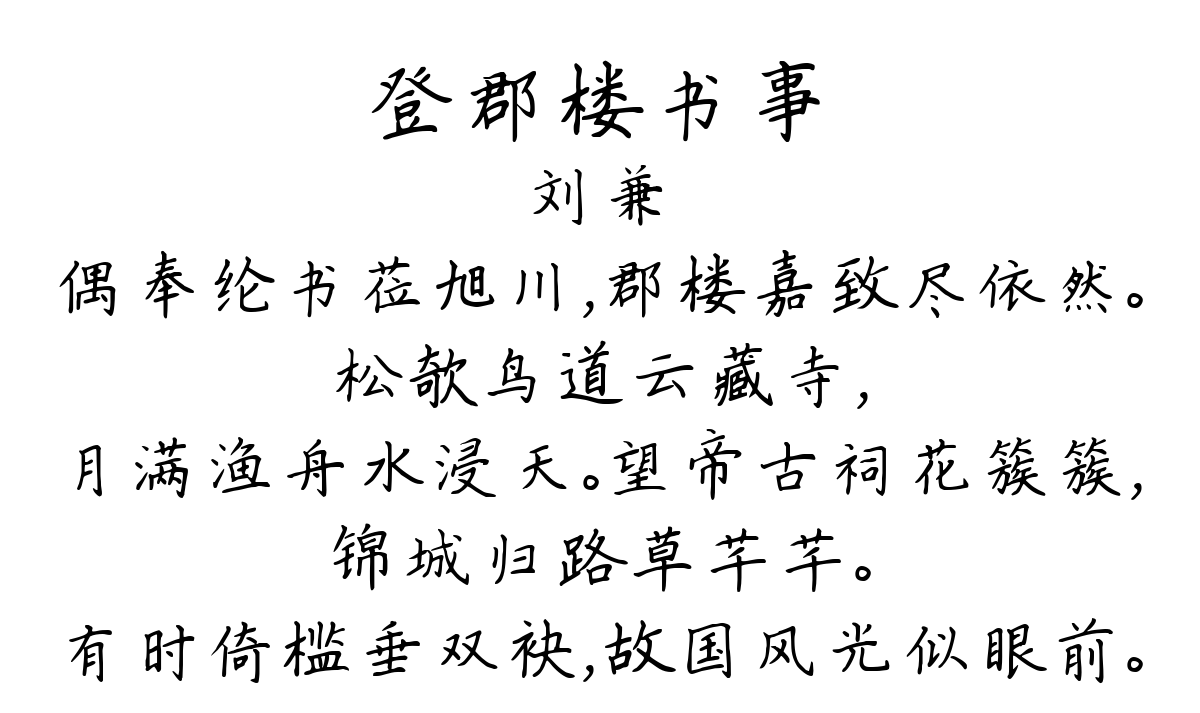 登郡楼书事
刘兼
偶奉纶书莅旭川,郡楼嘉致尽依然。
松欹鸟道云藏寺,
月满渔舟水浸天。望帝古祠花簇簇,
锦城归路草芊芊。
有时倚槛垂双袂,故国风光似眼前。